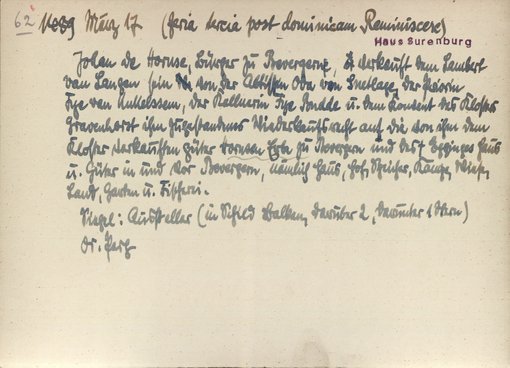 62 1489 März 17 (feria tercia post dominicam Reminiscere)
Haus Surenburg
Johan de Hornse, Bürger zu Bevergerne, verkauft dem Lambert
van Langen sein von der Abtissin Oda von Snetlage, der Priorin
Fye van, der Kellnerin Fye u. dem Konvent des Klosters
Gravenhorst ihm zugestandenes Wiederkaufsrecht auf die von ihm dem
Kloster verkauften Güter Hornsen Erbe zu Bevergern und des Egginges Haus
u. Güter in und vor Bevergern, nämlich Haus, Hof, Speicher, Kämpe, Wiese,
Land, Garten u. Fischerei.
Siegel: Aussteller (in Schild Balken, darüber 2, darunter 1 Stern)
Or. Perg